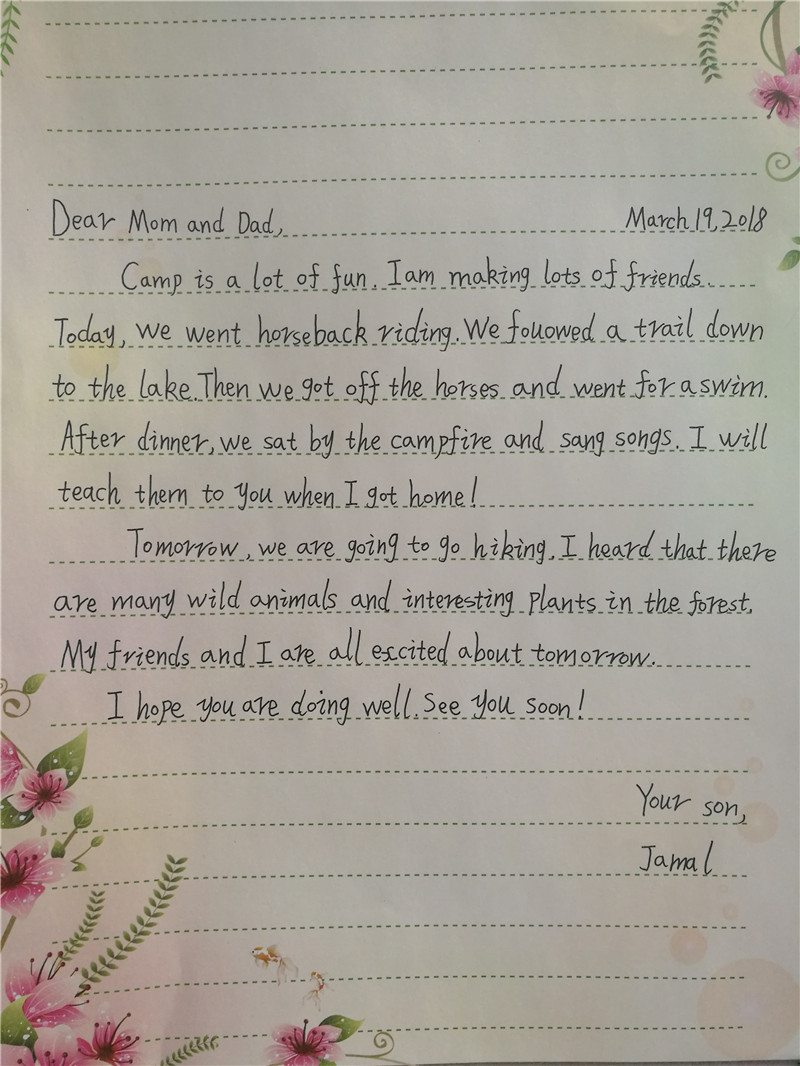 Dear Mom and Dad, March 19, 2018
Camp is a lot of fun. I am making lots of friends.
Today, we went horseback riding. We fouowed a trail down
to the lake. Then we got off the horses and went for a swim.
After dinner, we sat by the campfire and sang songs. I will
teach them to you when I got home!
Tomorrow, we are going to go hiking. I heard that there
are many wild animals and interesting plants in the forest.
My friends and I are all excited about tomorrow.
I hope you are doing well. See you soon!
Your son,
Jamal